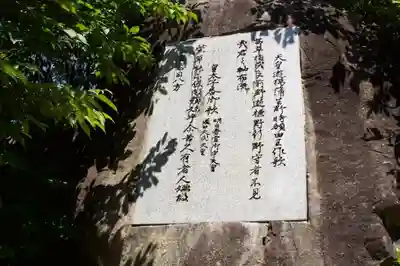 天皇遊獦蒲生野時額田王作歌
茜草指武良前野逝標野行野守者不見
哉君之袖布流
皇太子答御歌
明日香宮御宇天皇
謚曰天武天皇
紫草能尓保敝類妹乎尓苦久有者人嬬故
目八方